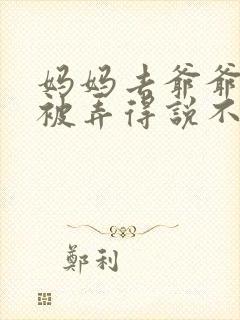 妈妈去爷爷
被弄得説不
鄭利